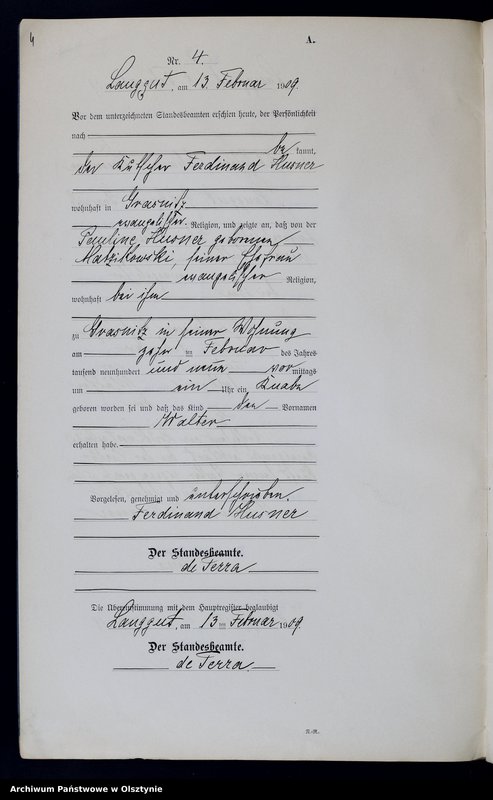 4
A.
Nr. 4.
Langgut, am 13. Februar 1909.
Vor dem unterzeichneten Standesbeamten erschien heute, der Persönlichkeit
nach
be kannt,
der Kutscher Ferdinand Husner
wohnhaft in Grasnitz
evangelischer Religion, und zeigte an, daß von der
Pauline Husner geborenen
Matzikowski, seiner Ehefrau
evangelischer Religion,
wohnhaft bei ihm
zu Grasnitz in seiner Wohnung
am zehn ten Februar des Jahres
tausend neunhundert und neun vor mittags
um ein Uhr ein Knabe
geboren worden sei und daß das Kind den Vornamen
Walter
erhalten habe.
Vorgelesen, genehmigt und unterschrieben.
Ferdinand Husner
Der Standesbeamte.
de Terra.
Die Übereinstimmung mit dem Hauptregister beglaubigt
Langgut, am 13 ten Februar 1909.
Der Standesbeamte.
de Terra.
Archiwum Państwowe w Olsztynie